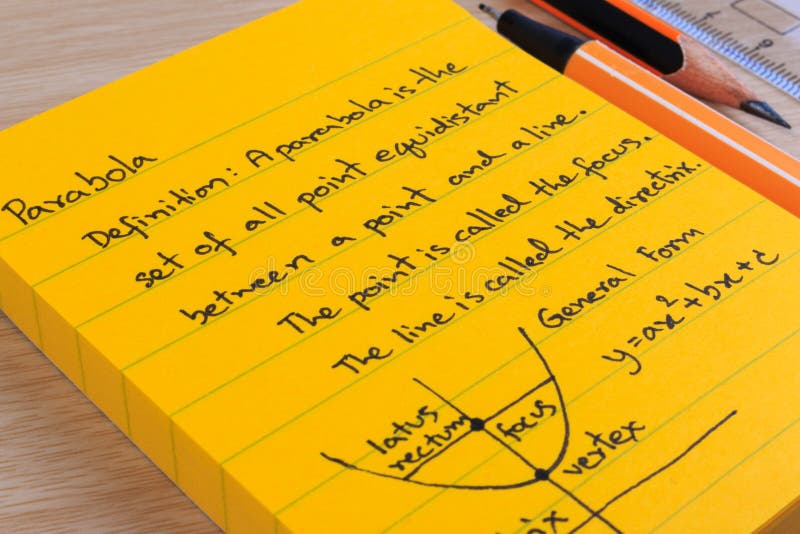 Parabola
Definition: A parabola is the
set of all point equidistant
between a point and a line.
The point is called the focus.
The line is called the directrix.
General Form
y=ax²+bx+c
latus
rectum
focus
vertex
ix
dreamstime